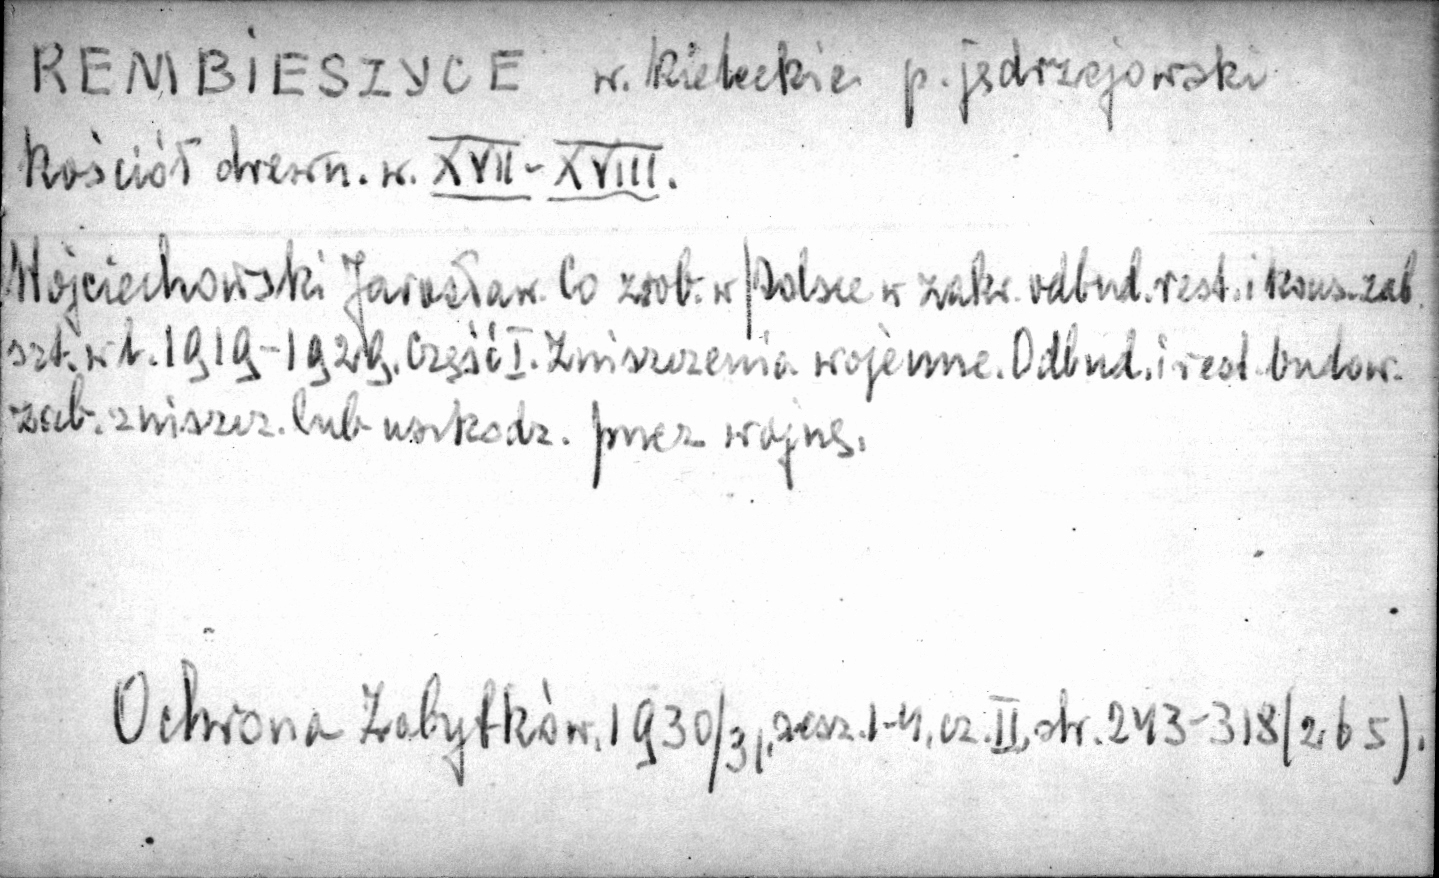 REMBIESZYCE w. kieleckie p. jędrzejowski
Kościół drewn. w. XVII-XVIII.
Wojciechowski Jarosław. Co zrob. w Polsce w zakr. odbud. rest. i kons. zab.
szt. w l. 1919-1929. Część I. Zniszczenia wojenne. Odbud. i rest. budow.
zab. zniszcz. lub uszkodz. przez wojnę.
Ochrona Zabytków, 1930/31, zesz. 1-4, cz. II, str. 243-318 (265).